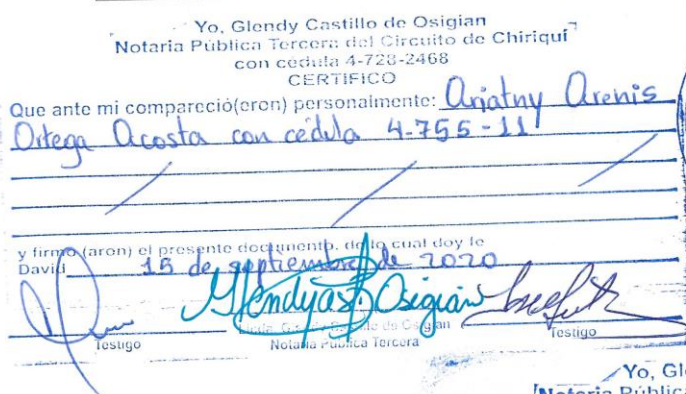 Yo, Glendy Castillo de Osigian
Notaria Pública Tercera del Circuito de Chiriquí
con cédula 4-728-2468
CERTIFICO
Que ante mi compareció(eron) personalmente: Ariatny Arenis
Ortega Acosta con cédula 4-755-11
y firmó (aron) el presente documento, de lo cual doy fe
David 15 de septiembre de 2020
Glendy Osigian
Testigo Licda. Glendy Castillo de Osigian Testigo
Notaria Pública Tercera
Yo, Gle
Notaria Pública